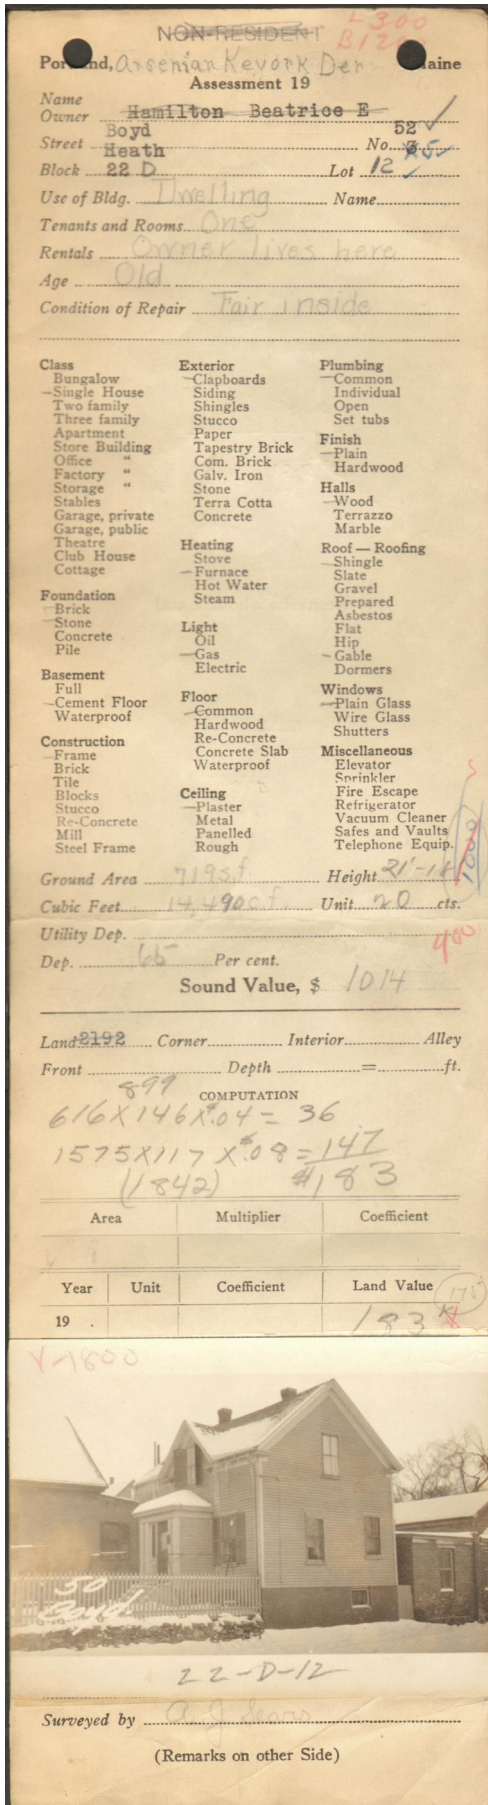 NON-RESIDENT
L 300
B 120
Portland, Arsenian Kevork Der Maine
Assessment 19
Name
Owner Hamilton Beatrice E
Boyd 52
Street Heath No. 3
Block 22 D Lot 12
Use of Bldg. Dwelling Name
Tenants and Rooms One
Rentals Owner lives here
Age Old
Condition of Repair Fair inside
Class
Bungalow
Single House
Two family
Three family
Apartment
Store Building
Office "
Factory "
Storage "
Stables
Garage, private
Garage, public
Theatre
Club House
Cottage
Foundation
Brick
Stone
Concrete
Pile
Basement
Full
Cement Floor
Waterproof
Construction
Frame
Brick
Tile
Blocks
Stucco
Re-Concrete
Mill
Steel Frame
Exterior
Clapboards
Siding
Shingles
Stucco
Paper
Tapestry Brick
Com. Brick
Galv. Iron
Stone
Terra Cotta
Concrete
Heating
Stove
Furnace
Hot Water
Steam
Light
Oil
Gas
Electric
Floor
Common
Hardwood
Re-Concrete
Concrete Slab
Waterproof
Ceiling
Plaster
Metal
Panelled
Rough
Plumbing
Common
Individual
Open
Set tubs
Finish
Plain
Hardwood
Halls
Wood
Terrazzo
Marble
Roof — Roofing
Shingle
Slate
Gravel
Prepared
Asbestos
Flat
Hip
Gable
Dormers
Windows
Plain Glass
Wire Glass
Shutters
Miscellaneous
Elevator
Sprinkler
Fire Escape
Refrigerator
Vacuum Cleaner
Safes and Vaults
Telephone Equip.
1000
Ground Area 719 s.f. Height 21'-18
Cubic Feet 14,490 c.f. Unit 20 cts.
Utility Dep.
900
Dep. 65 Per cent.
Sound Value, $ 1014
Land 2192 Corner Interior Alley
Front Depth = ft.
899
COMPUTATION
616 X 146 X .04 = 36
1575 X 117 X .08 = 147
(1842) $183
Area Multiplier Coefficient
Year Unit Coefficient Land Value
175
19 . 183
V-1800
50
Boyd
22-D-12
Surveyed by A. J. Sears
(Remarks on other Side)